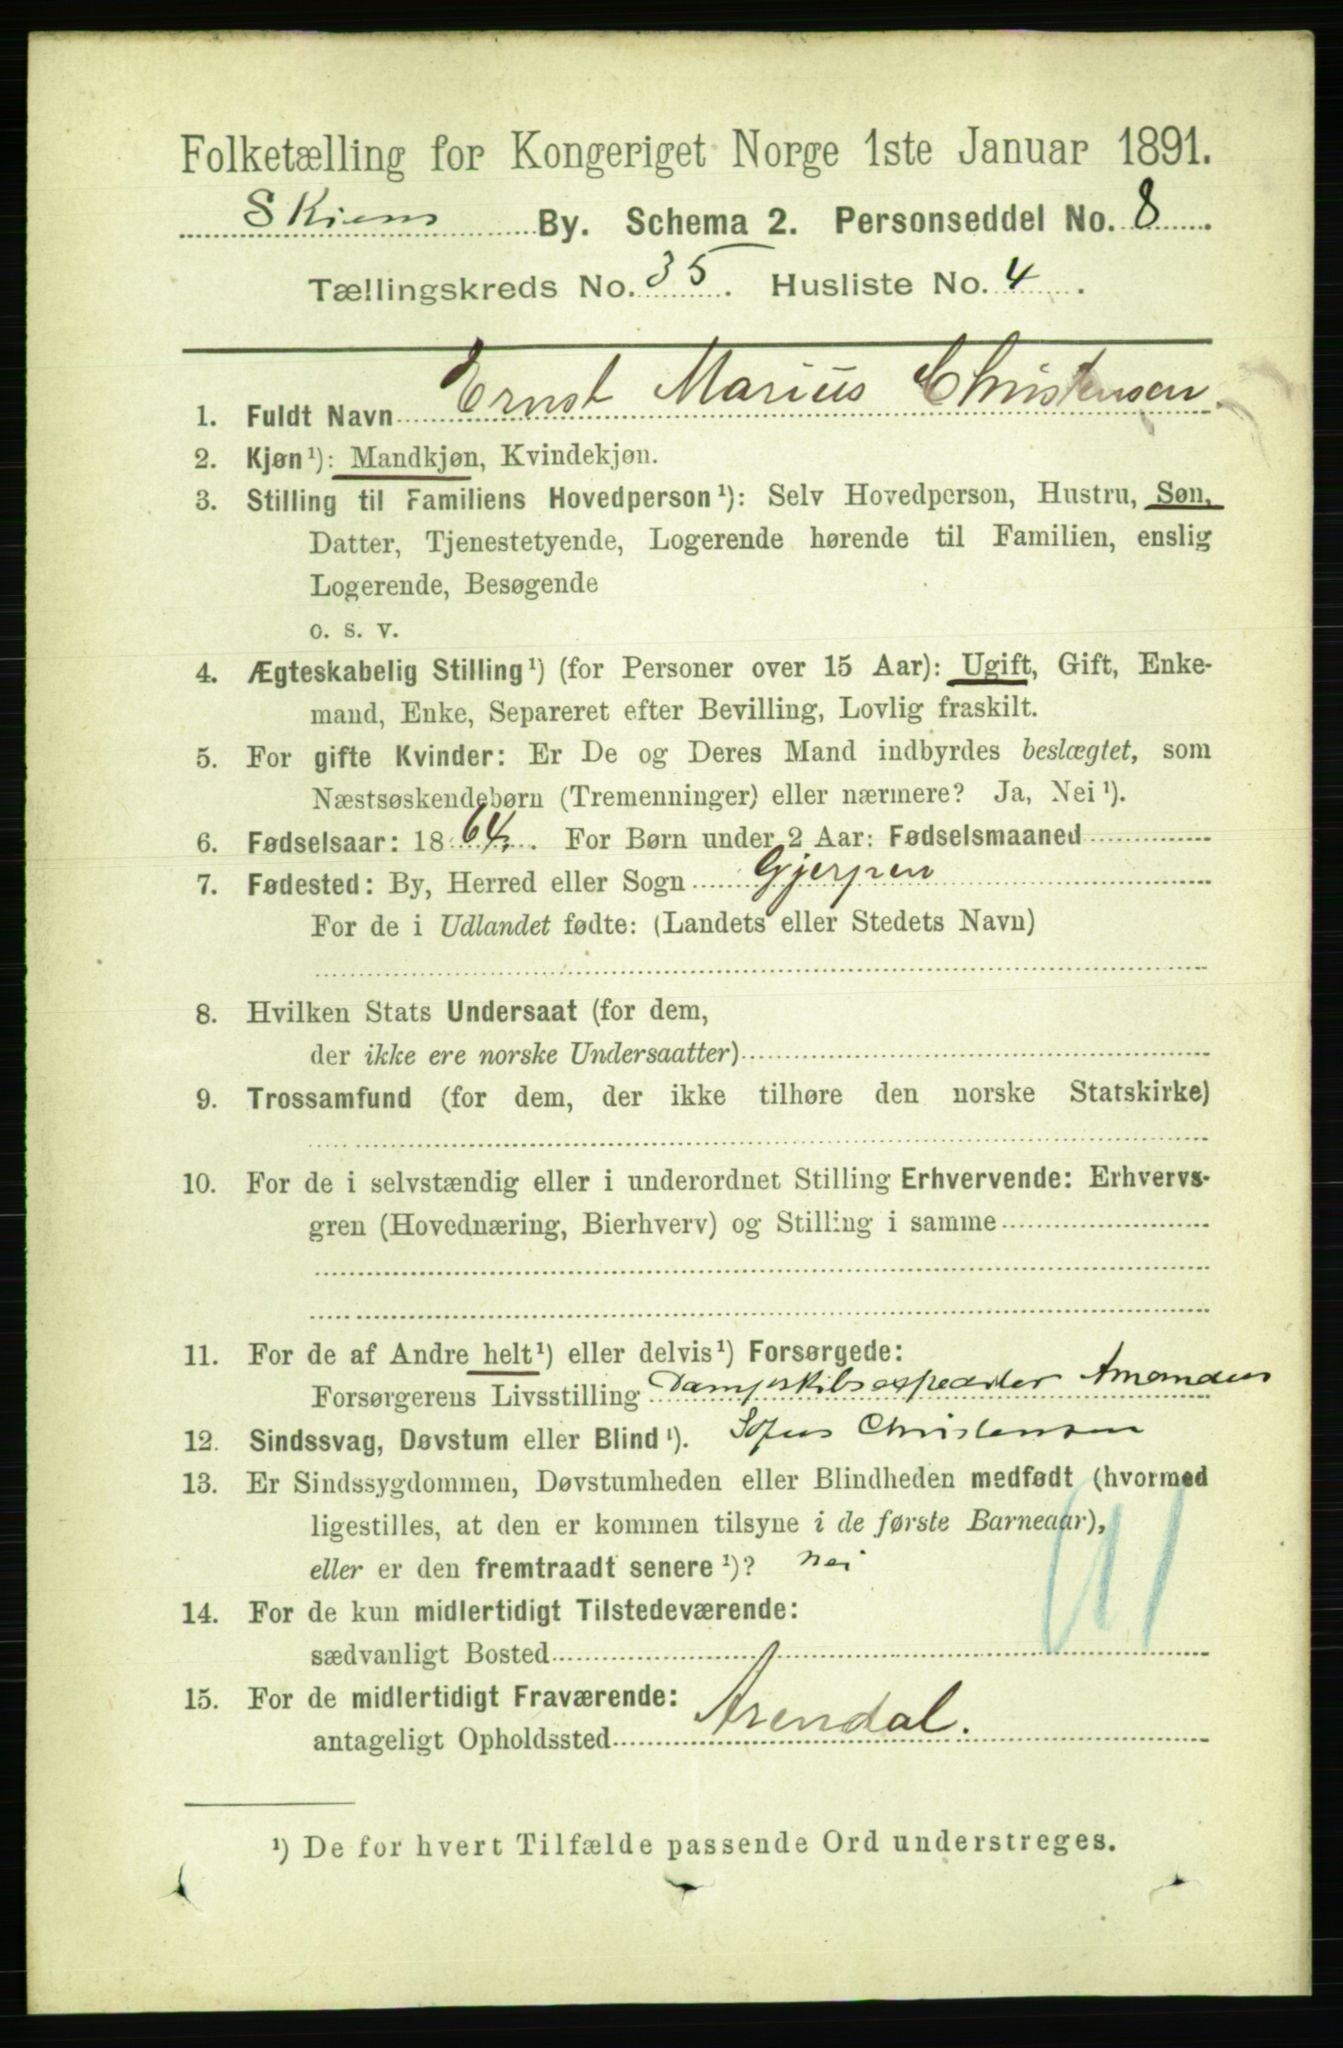 Folketælling for Kongeriget Norge 1ste Januar 1891.
Skiens By. Schema 2. Personseddel No. 8.
Tællingskreds No. 35. Husliste No. 4.
1. Fuldt Navn Ernst Marius Christensen.
2. Kjøn¹): Mandkjøn, Kvindekjøn.
3. Stilling til Familiens Hovedperson¹): Selv Hovedperson, Hustru, Søn,
Datter, Tjenestetyende, Logerende hørende til Familien, enslig
Logerende, Besøgende
o. s. v.
4. Ægteskabelig Stilling¹) (for Personer over 15 Aar): Ugift, Gift, Enke-
mand, Enke, Separeret efter Bevilling, Lovlig fraskilt.
5. For gifte Kvinder: Er De og Deres Mand indbyrdes beslægtet, som
Næstsøskendebørn (Tremenninger) eller nærmere? Ja, Nei¹).
6. Fødselsaar: 1864. For Børn under 2 Aar: Fødselsmaaned
7. Fødested: By, Herred eller Sogn Gjerpen
For de i Udlandet fødte: (Landets eller Stedets Navn)
8. Hvilken Stats Undersaat (for dem,
der ikke ere norske Undersaatter)
9. Trossamfund (for dem, der ikke tilhøre den norske Statskirke)
10. For de i selvstændig eller i underordnet Stilling Erhvervende: Erhvervs-
gren (Hovednæring, Bierhverv) og Stilling i samme
11. For de af Andre helt¹) eller delvis¹) Forsørgede:
Forsørgerens Livsstilling Dampskibsexpeditør Amandus
12. Sindssvag, Døvstum eller Blind¹). Sofus Christensen
13. Er Sindssygdommen, Døvstumheden eller Blindheden medfødt (hvormed
ligestilles, at den er kommen tilsyne i de første Barneaar),
eller er den fremtraadt senere¹)? nei
14. For de kun midlertidigt Tilstedeværende:
sædvanligt Bosted
15. For de midlertidigt Fraværende:
antageligt Opholdssted Arendal.
¹) De for hvert Tilfælde passende Ord understreges.